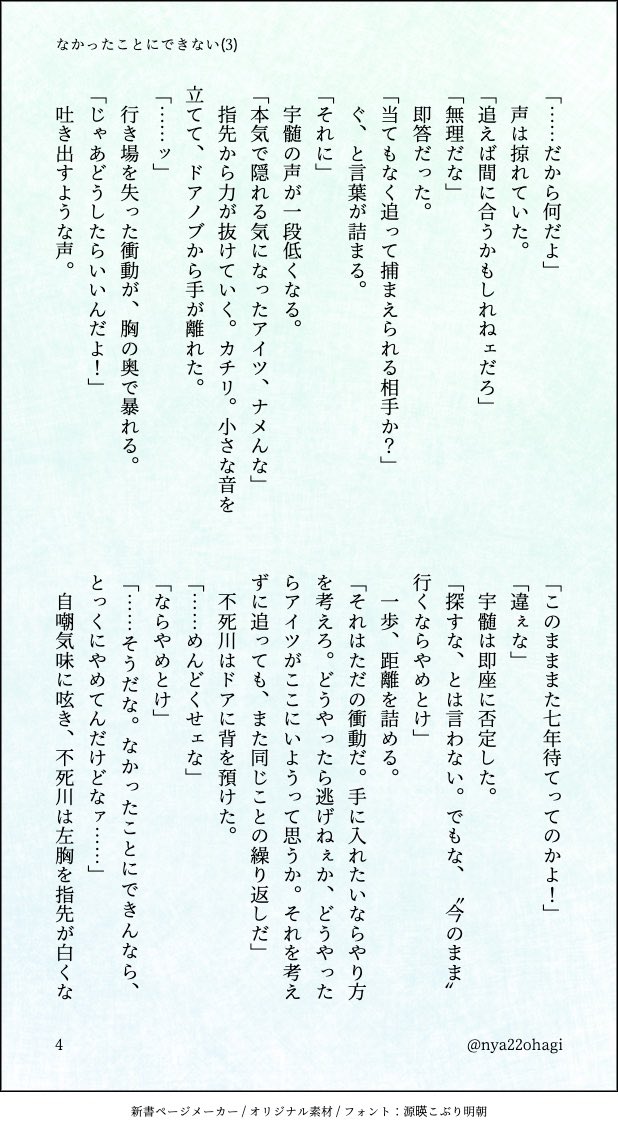 なかったことにできない(3)
「……だから何だよ」
声は掠れていた。
「追えば間に合うかもしれねェだろ」
「無理だな」
即答だった。
「当てもなく追って捕まえられる相手か?」
ぐ、と言葉が詰まる。
「それに」
宇髄の声が一段低くなる。
「本気で隠れる気になったアイツ、ナメんな」
指先から力が抜けていく。カチリ。小さな音を
立てて、ドアノブから手が離れた。
「……ッ」
行き場を失った衝動が、胸の奥で暴れる。
「じゃあどうしたらいいんだよ!」
吐き出すような声。
「このまままた七年待てってのかよ!」
「違ぇな」
宇髄は即座に否定した。
「探すな、とは言わない。でもな、〝今のまま〟
行くならやめとけ」
一歩、距離を詰める。
「それはただの衝動だ。手に入れたいならやり方
を考えろ。どうやったら逃げねぇか、どうやった
らアイツがここにいようって思うか。それを考え
ずに追っても、また同じことの繰り返しだ」
不死川はドアに背を預けた。
「……めんどくせェな」
「ならやめとけ」
「……そうだな。なかったことにできんなら、
とっくにやめてんだけどなァ……」
自嘲気味に呟き、不死川は左胸を指先が白くな
4
@nya22ohagi
新書ページメーカー / オリジナル素材 / フォント：源暎こぶり明朝